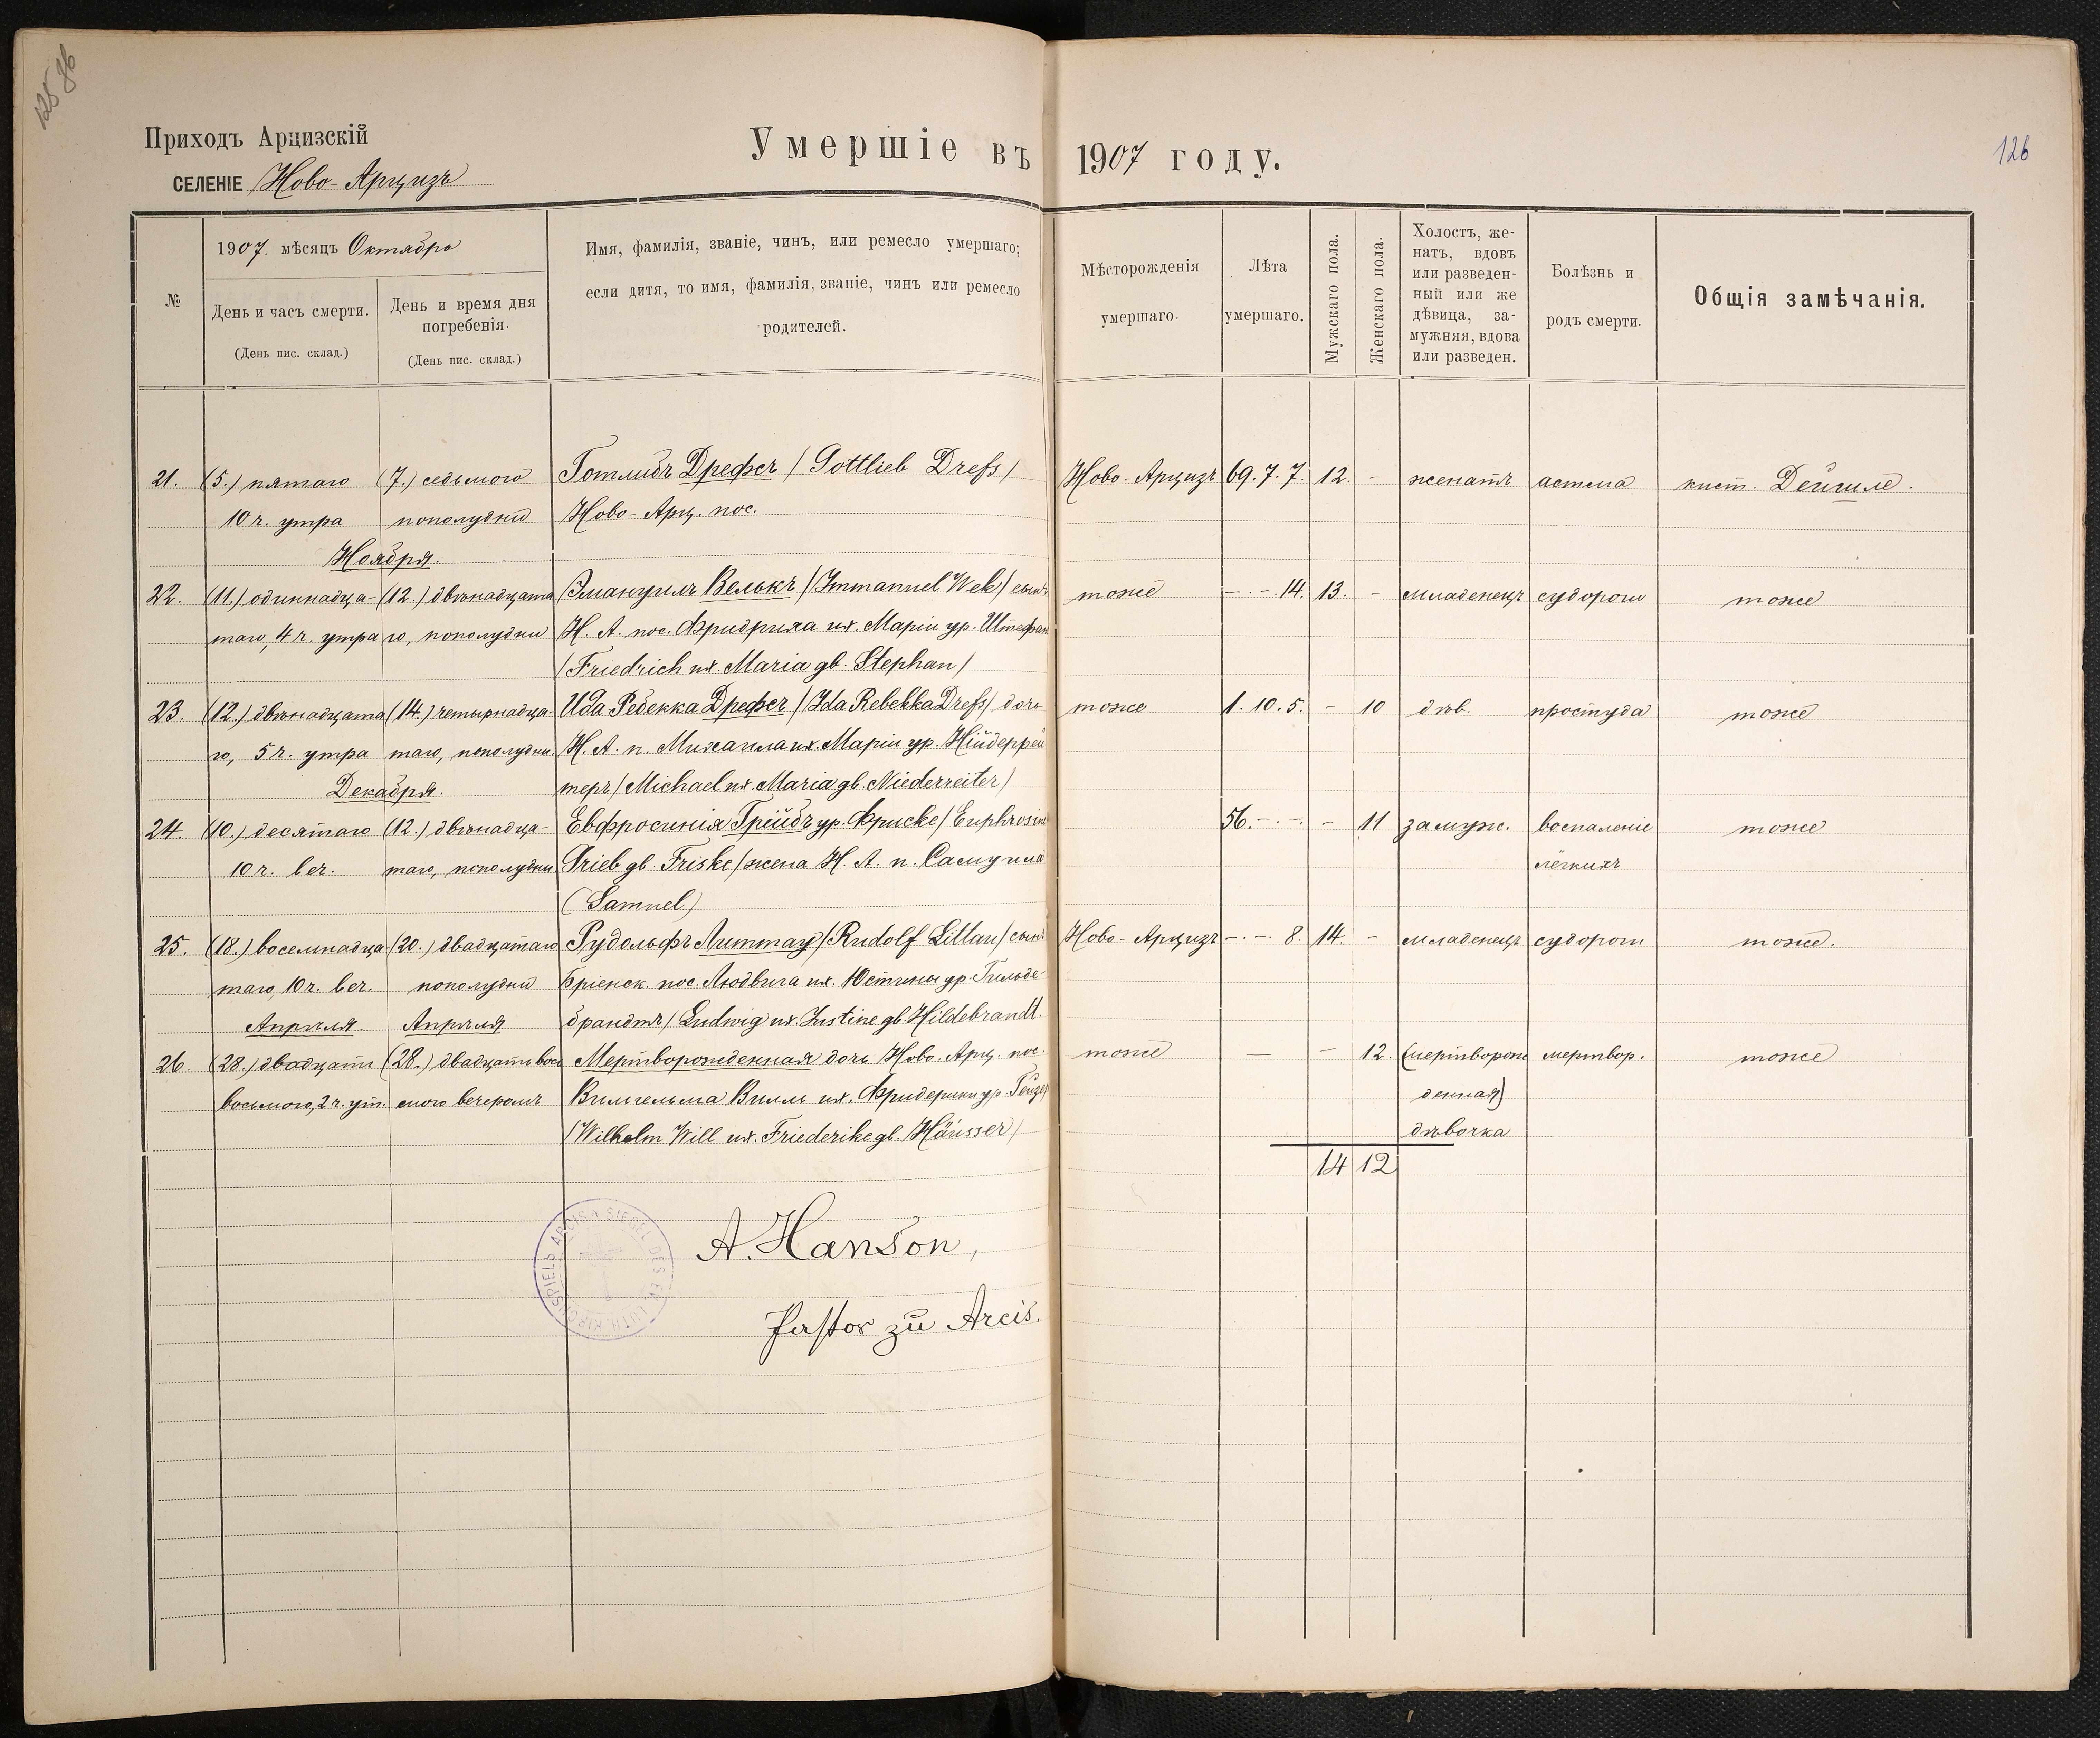 125 об
126
Приходъ Арцизскій
СЕЛЕНІЕ Ново-Арцизъ
Умершіе въ 1907 году.
№
1907. мѣсяцъ Октября
День и часъ смерти.
(День пис. склад.)
День и время дня
погребенія.
(День пис. склад.)
Имя, фамилія, званіе, чинъ, или ремесло умершаго;
если дитя, то имя, фамилія, званіе, чинъ или ремесло
родителей.
Мѣсторожденія
умершаго.
Лѣта
умершаго.
Мужскаго пола.
Женскаго пола.
Холостъ, же-
натъ, вдовъ
или разведен-
ный или же
дѣвица, за-
мужняя, вдова
или разведен.
Болѣзнь и
родъ смерти.
Общія замѣчанія.
21. (5.) пятаго (7.) седьмого Готлибъ Дрефсъ / Gottlieb Drefs / Ново-Арцизъ 69. 7. 7. 12. - женатъ астма кист. Дейгиле.
10 ч. утра пополудни Ново-Арц. пос.
Ноября.
22. (11.) одиннадца- (12.) двѣнадцата Эмануилъ Велькъ / Immanuel Welk / сынъ тоже -.-14. 13. - младенецъ судороги тоже
таго, 4 ч. утра го, пополудни Н. А. пос. Фридриха и ж. Маріи ур. Штефанъ
/ Friedrich u ж. Maria gb. Stephan /
23. (12.) двѣнадцата (14.) четырнадца- Ида Ребекка Дрефсъ / Ida Rebekka Drefs / дочь тоже 1. 10. 5. - 10 дѣв. простуда тоже
го, 5 ч. утра таго, пополудни. Н. А. п. Михаила и ж. Маріи ур. Нійдеррей
Декабря. теръ / Michael u ж. Maria gb. Niederreiter /
24. (10.) десятаго (12.) двѣнадца- Евфросинія Грійбъ ур. Фриске / Euphrosine 56. -. -. - 11 замуж. воспаленіе тоже
10 ч. веч. таго, пополудни Grieb gb. Friske / жена Н. А. п. Самуила легкихъ
(Samuel)
25. (18.) восемнадца- (20.) двадцатаго Рудольфъ Литтау / Rudolf Littau / сынъ Ново-Арцизъ -.- 8. 14. - младенецъ судороги тоже.
таго, 10 ч. веч. пополудни Бріенск. пос. Людвига и ж. Юстины ур. Гильде-
Апрѣля. Апрѣля брандтъ / Ludwig u ж. Justine gb. Hildebrandt.
26. (28.) двадцати (28.) двадцати вось Мертворожденная дочь Ново-Арц. пос. тоже — - 12. (мертворож мертвор. тоже
восьмого, 2 ч. ут. мого вечеромъ Вильгельма Вилль и ж. Фридерики ур. денная)
/ Wilhelm Will u ж. Friederike gb. Häusser / дѣвочка
14 12
A. Hanson,
Pastor zu Arcis.
SIEGEL DES EV. LUTH. KIRCHSPIELS ARCIS